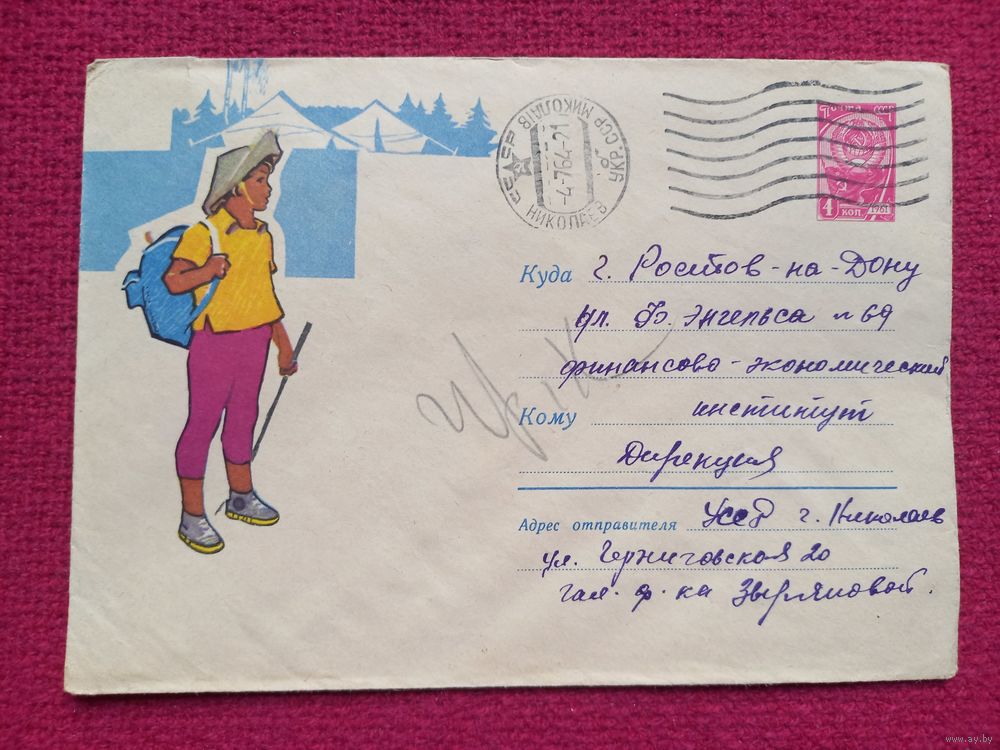 ПОЧТА СССР
4 КОП 1961
УКР.ССР МИКОЛАЇВ
-4-7 64-21
НИКОЛАЕВ
Куда г. Ростов-на-Дону
ул. Ф. Энгельса № 69
финансово-экономический
Кому институт
Дирекция
Адрес отправителя УССР г. Николаев
ул. Черниговская 20
гал. ф-ка Зыряновой.
www.ay.by